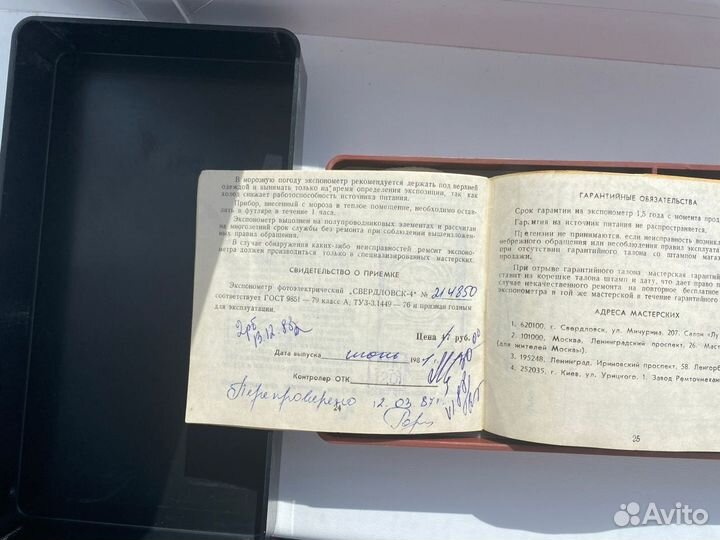 В морозную погоду экспонометр рекомендуется держать под верхней
одеждой и вынимать только на время определения экспозиции, так как
холод снижает работоспособность источника питания.
Прибор, внесенный с мороза в теплое помещение, необходимо остав-
лять в футляре в течение 1 часа.
Экспонометр выполнен на полупроводниковых элементах и рассчитан
на многолетний срок службы без ремонта при соблюдении вышеизложен-
ных правил обращения.
В случае обнаружения каких-либо неисправностей ремонт экспоно-
метра должен производиться только в специализированных мастерских.
СВИДЕТЕЛЬСТВО О ПРИЕМКЕ
Экспонометр фотоэлектрический „СВЕРДЛОВСК-4" № 214850
соответствует ГОСТ 9851 — 79 класс А, ТУ3-3.1449 — 76 и признан годным
для эксплуатации.
13.12.88
Цена руб. 00
Дата выпуска июнь 198
Контролер ОТК
Перепроверено 12.03.87г.
24
ГАРАНТИЙНЫЕ ОБЯЗАТЕЛЬСТВА
Срок гарантии на экспонометр 1,5 года с момента прод
Гарантия на источник питания не распространяется.
Претензии не принимаются, если неисправность возник
небрежного обращения или несоблюдения правил эксплуата
при отсутствии гарантийного талона со штампом магаз
продажи.
При отрыве гарантийного талона мастерская гарантий
ставит из корешке талона дату ремонта, что дает право п
случае некачественного ремонта на повторное бесплатное
экспонометра в той же мастерской в течение гарантийного
АДРЕСА МАСТЕРСКИХ
1. 620100, г. Свердловск, ул. Мичурина, 207. Салон „Лу
2. 101000, Москва, Ленинградский проспект, 26. Маст
(для жителей Москвы).
3. 195248, Ленинград, Ириновский проспект, 58. Ленгорб
4. 252035, г. Киев, ул. Урицкого, 1. Завод Ремточмехан
25
Avito